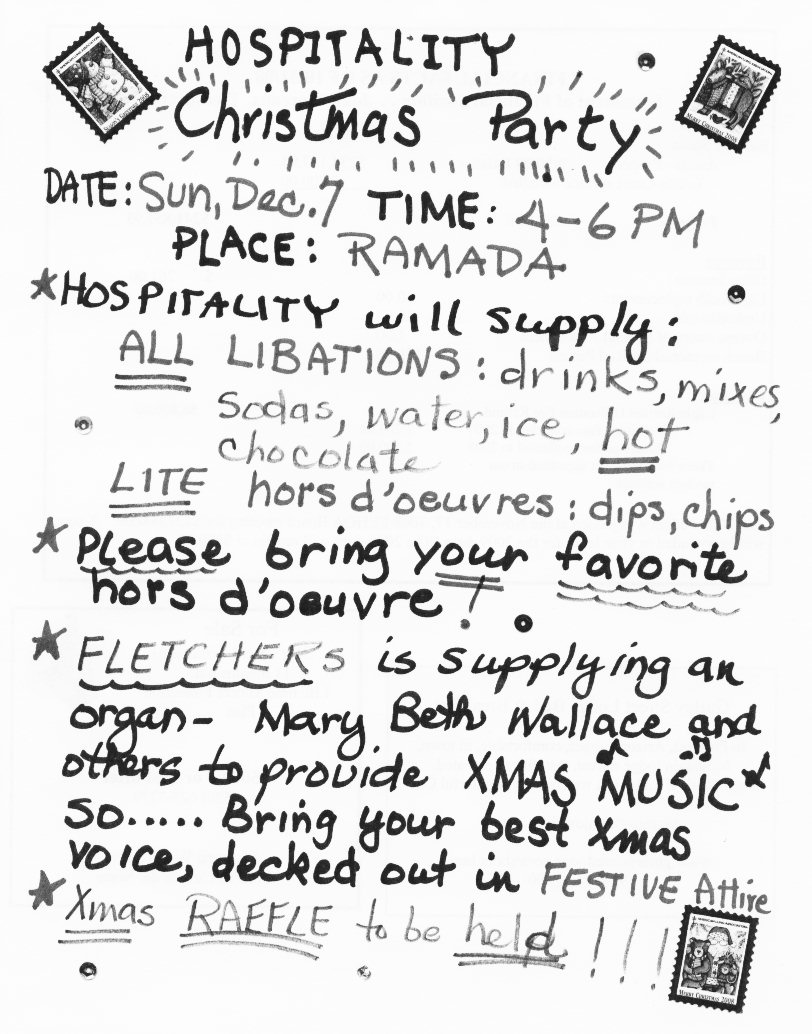 HOSPITALITY
Christmas Party
DATE: Sun, Dec. 7 TIME: 4-6 PM
PLACE: RAMADA
★ HOSPITALITY will supply:
ALL LIBATIONS: drinks, mixes,
sodas, water, ice, hot
chocolate
LITE hors d'oeuvres: dips, chips
★ Please bring your favorite
hors d'oeuvre!
★ FLETCHERS is supplying an
organ- Mary Beth Wallace and
others to provide XMAS MUSIC
so..... Bring your best Xmas
voice, decked out in FESTIVE Attire
★ Xmas RAFFLE to be held!!!
MERRY CHRISTMAS 2008
MERRY CHRISTMAS 2008